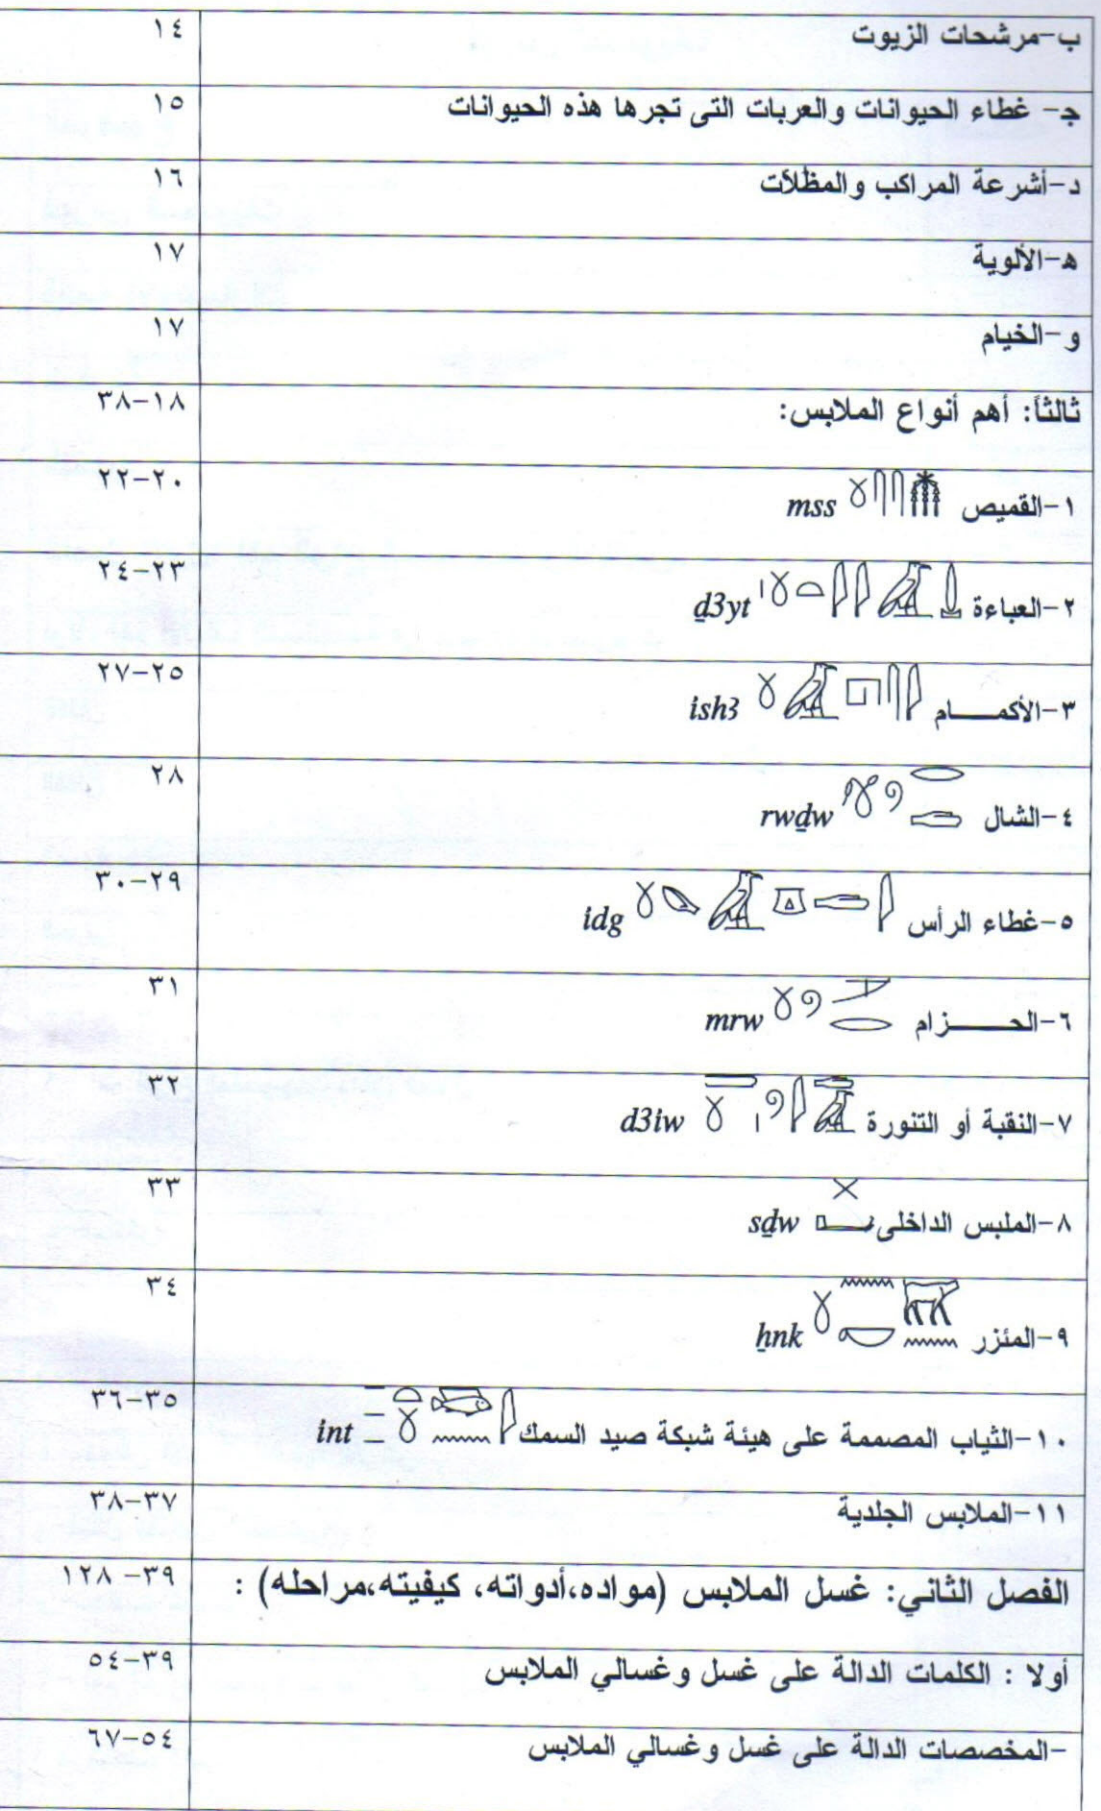 ب-مرشحات الزيوت ١٤
ج- غطاء الحيوانات والعربات التى تجرها هذه الحيوانات ١٥
د-أشرعة المراكب والمظلات ١٦
ه-الألوية ١٧
و-الخيام ١٧
ثالثاً: أهم أنواع الملابس: ١٨-٣٨
١-القميص mss ٢٠-٢٢
٢-العباءة ḏ3yt ٢٣-٢٤
٣-الأكمـــام ish3 ٢٥-٢٧
٤-الشال rwḏw ٢٨
٥-غطاء الرأس idg ٢٩-٣٠
٦-الحـــــزام mrw ٣١
٧-النقبة أو التنورة d3iw ٣٢
٨-الملبس الداخلى sḏw ٣٣
٩-المئزر ẖnk ٣٤
١٠-الثياب المصممة على هيئة شبكة صيد السمك int ٣٥-٣٦
١١-الملابس الجلدية ٣٧-٣٨
الفصل الثاني: غسل الملابس (مواده،أدواته، كيفيته،مراحله) : ٣٩- ١٢٨
أولا : الكلمات الدالة على غسل وغسالي الملابس ٣٩-٥٤
-المخصصات الدالة على غسل وغسالي الملابس ٥٤-٦٧